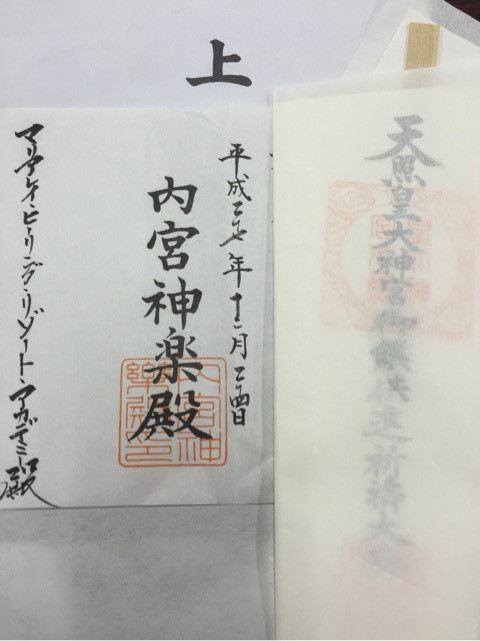 上
天照皇大神宮御饌供進祈祷大
平成二七年十一月二四日
内宮神楽殿
マリアケイ・ヒーリング・リゾート・アカデミー殿